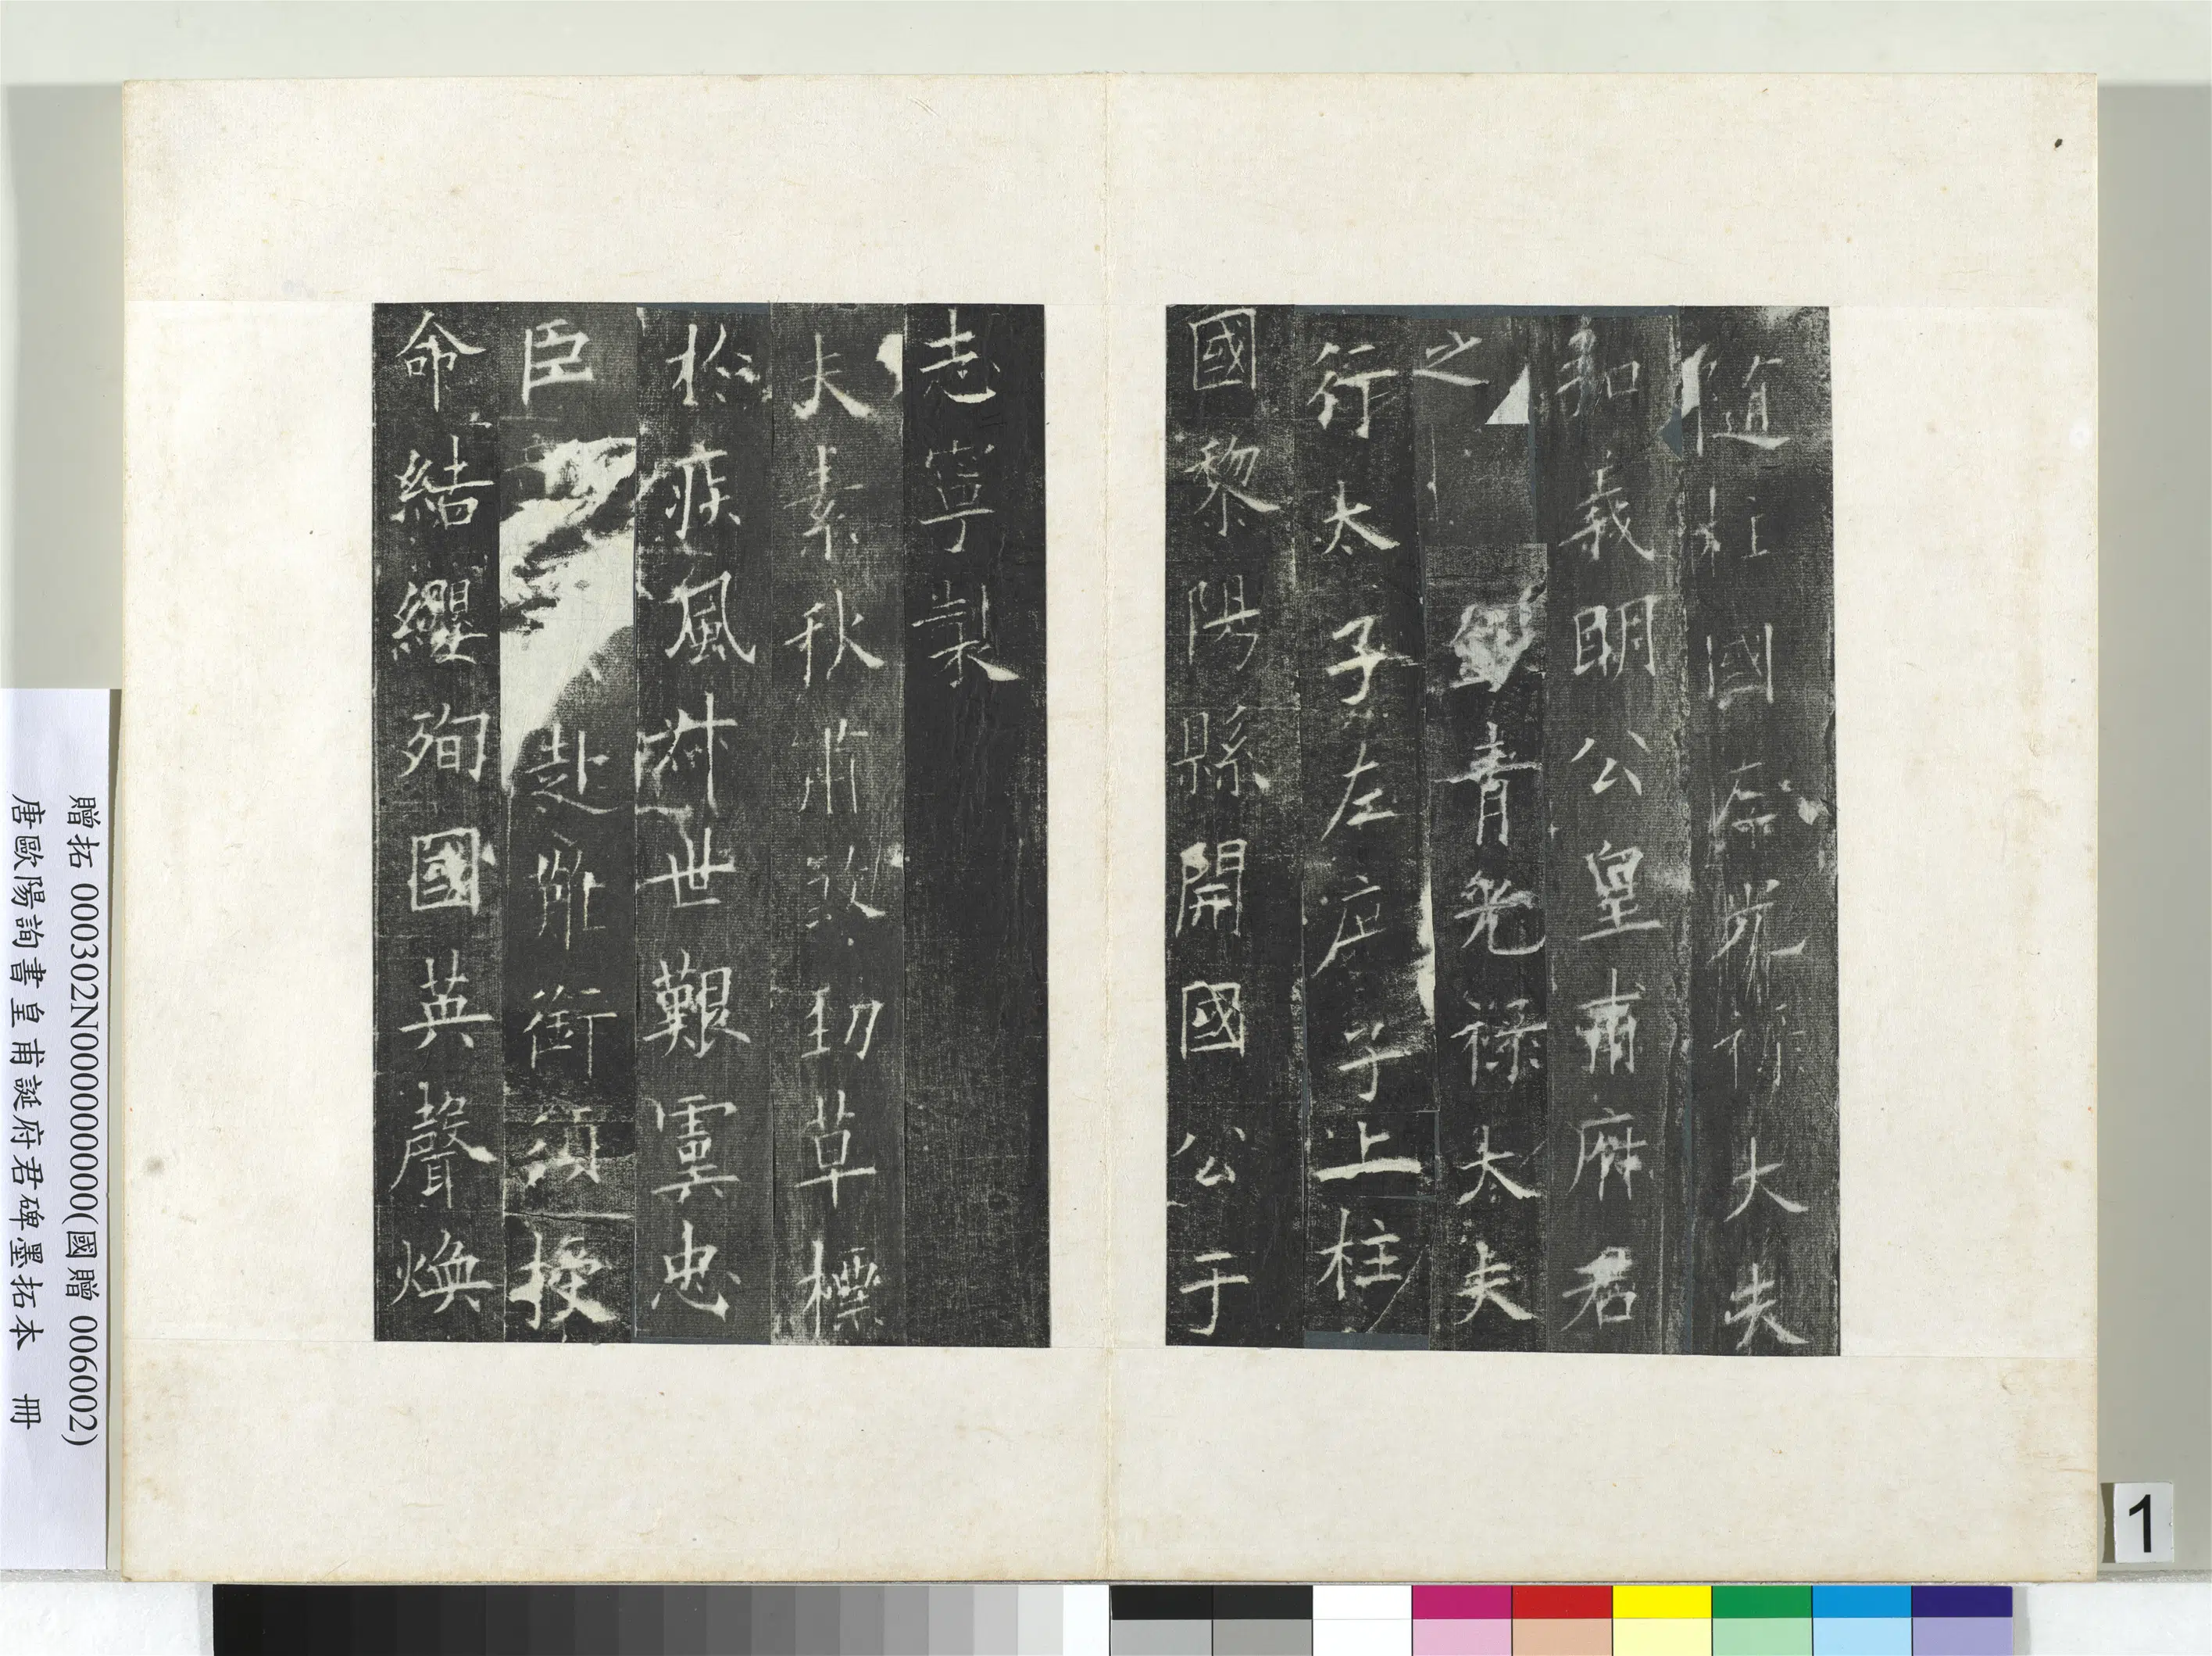 隨柱國左光祿大夫
弘義明公皇甫府君
之
銀青光祿大夫
行太子左庶子上柱
國黎陽縣開國公于
志寧製
夫素秋肅煞勁草標
於疾風叔世艱虞忠
臣赴難銜須授
命結纓殉國英聲煥
贈拓 000302N000000000(國贈 006002)
唐歐陽詢書皇甫誕府君碑墨拓本 冊
1